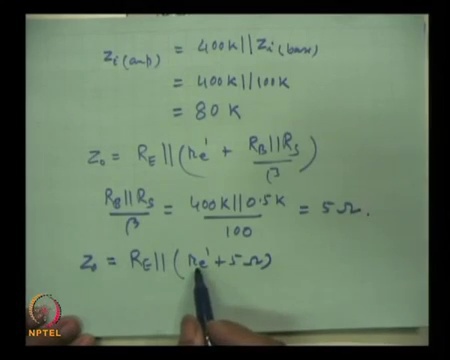 Zi(amp) = 400K||Zi(base)
= 400K||100K
= 80 K
Zo = RE||(re' + RB||RS/β)
RB||RS/β = 400K||0.5K/100 = 5Ω.
Zo = RE||(re' + 5Ω)
NPTEL